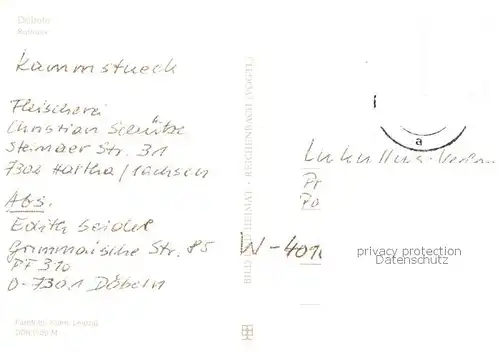 Döbeln
Rathaus
Kammstueck
Fleischerei
Christian Schütze
Steinaer Str. 31
7304 Hartha/Sachsen
Abs.
Edith Seidel
Grimmaische Str. 85
PF 310
O-7301 Döbeln
BILD HEIMAT REICHENBACH (VOGTL)
a
Lukullus-
Pr
Po
W-4010
privacy protection
Datenschutz